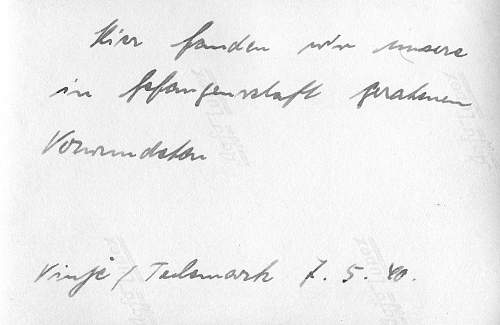 Hier fanden wir unsere
in Gefangenschaft geratenen
Verwundeten
Vinje / Telemark 7. 5. 40.